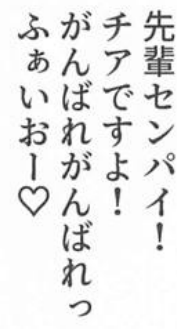 先輩センパイ！
チアですよ！
がんばれがんばれっ
ふぁいおー♡